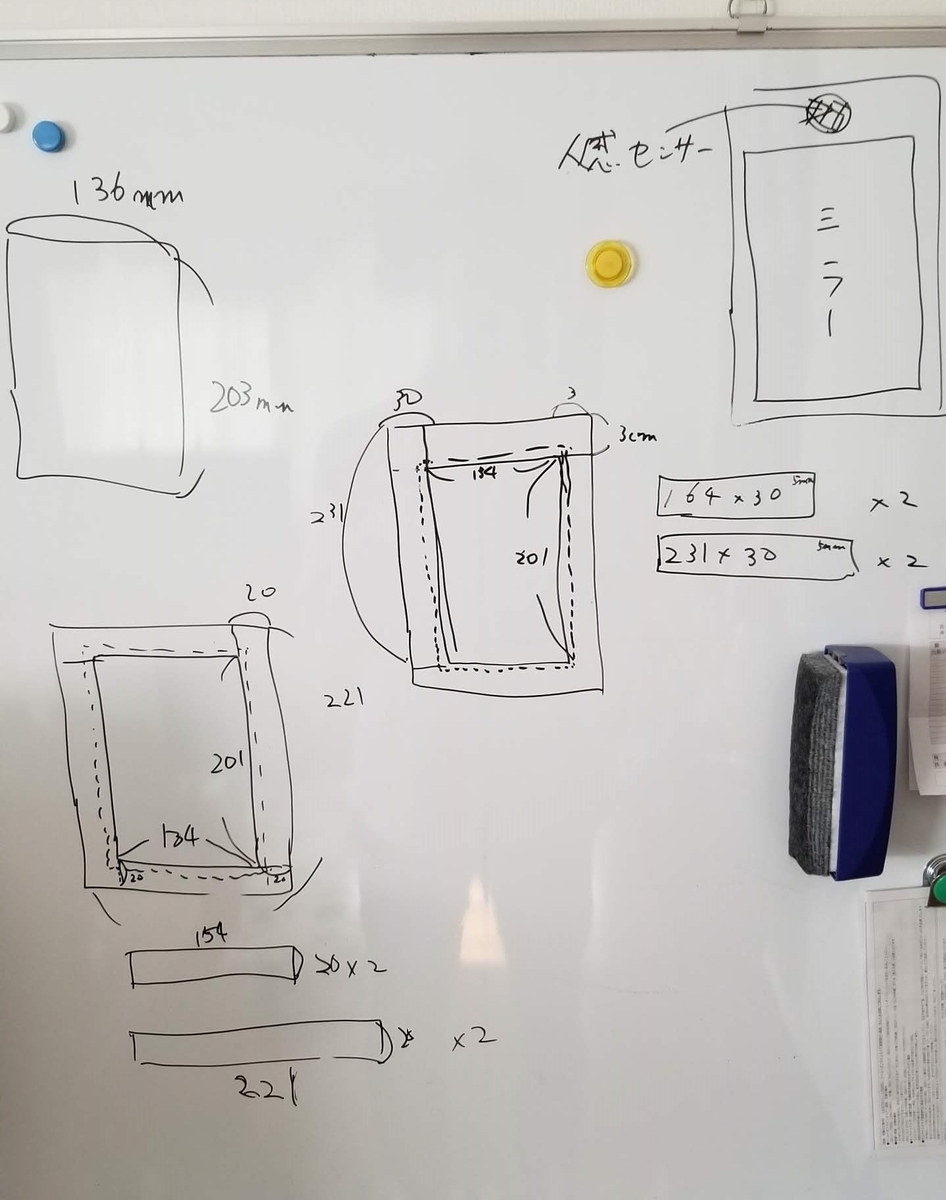 136mm
203mm
人感センサー
ミラー
30
3
3cm
134
231
201
164×30 5mm
×2
231×30 5mm
×2
20
221
201
134
20
20
154
20×2
×2
221